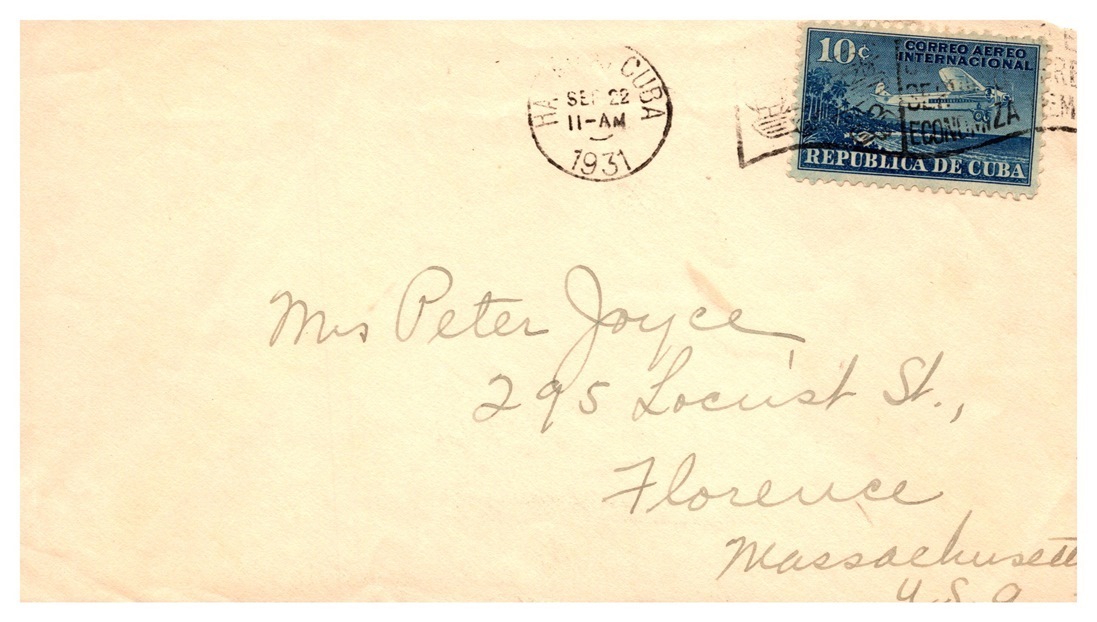 HABANA, CUBA
SEP 22
11-AM
1931
10¢
CORREO AEREO
INTERNACIONAL
ECONOMIZA
REPUBLICA DE CUBA
Mrs Peter Joyce
295 Locust St.,
Florence
Massachusett
U.S.A